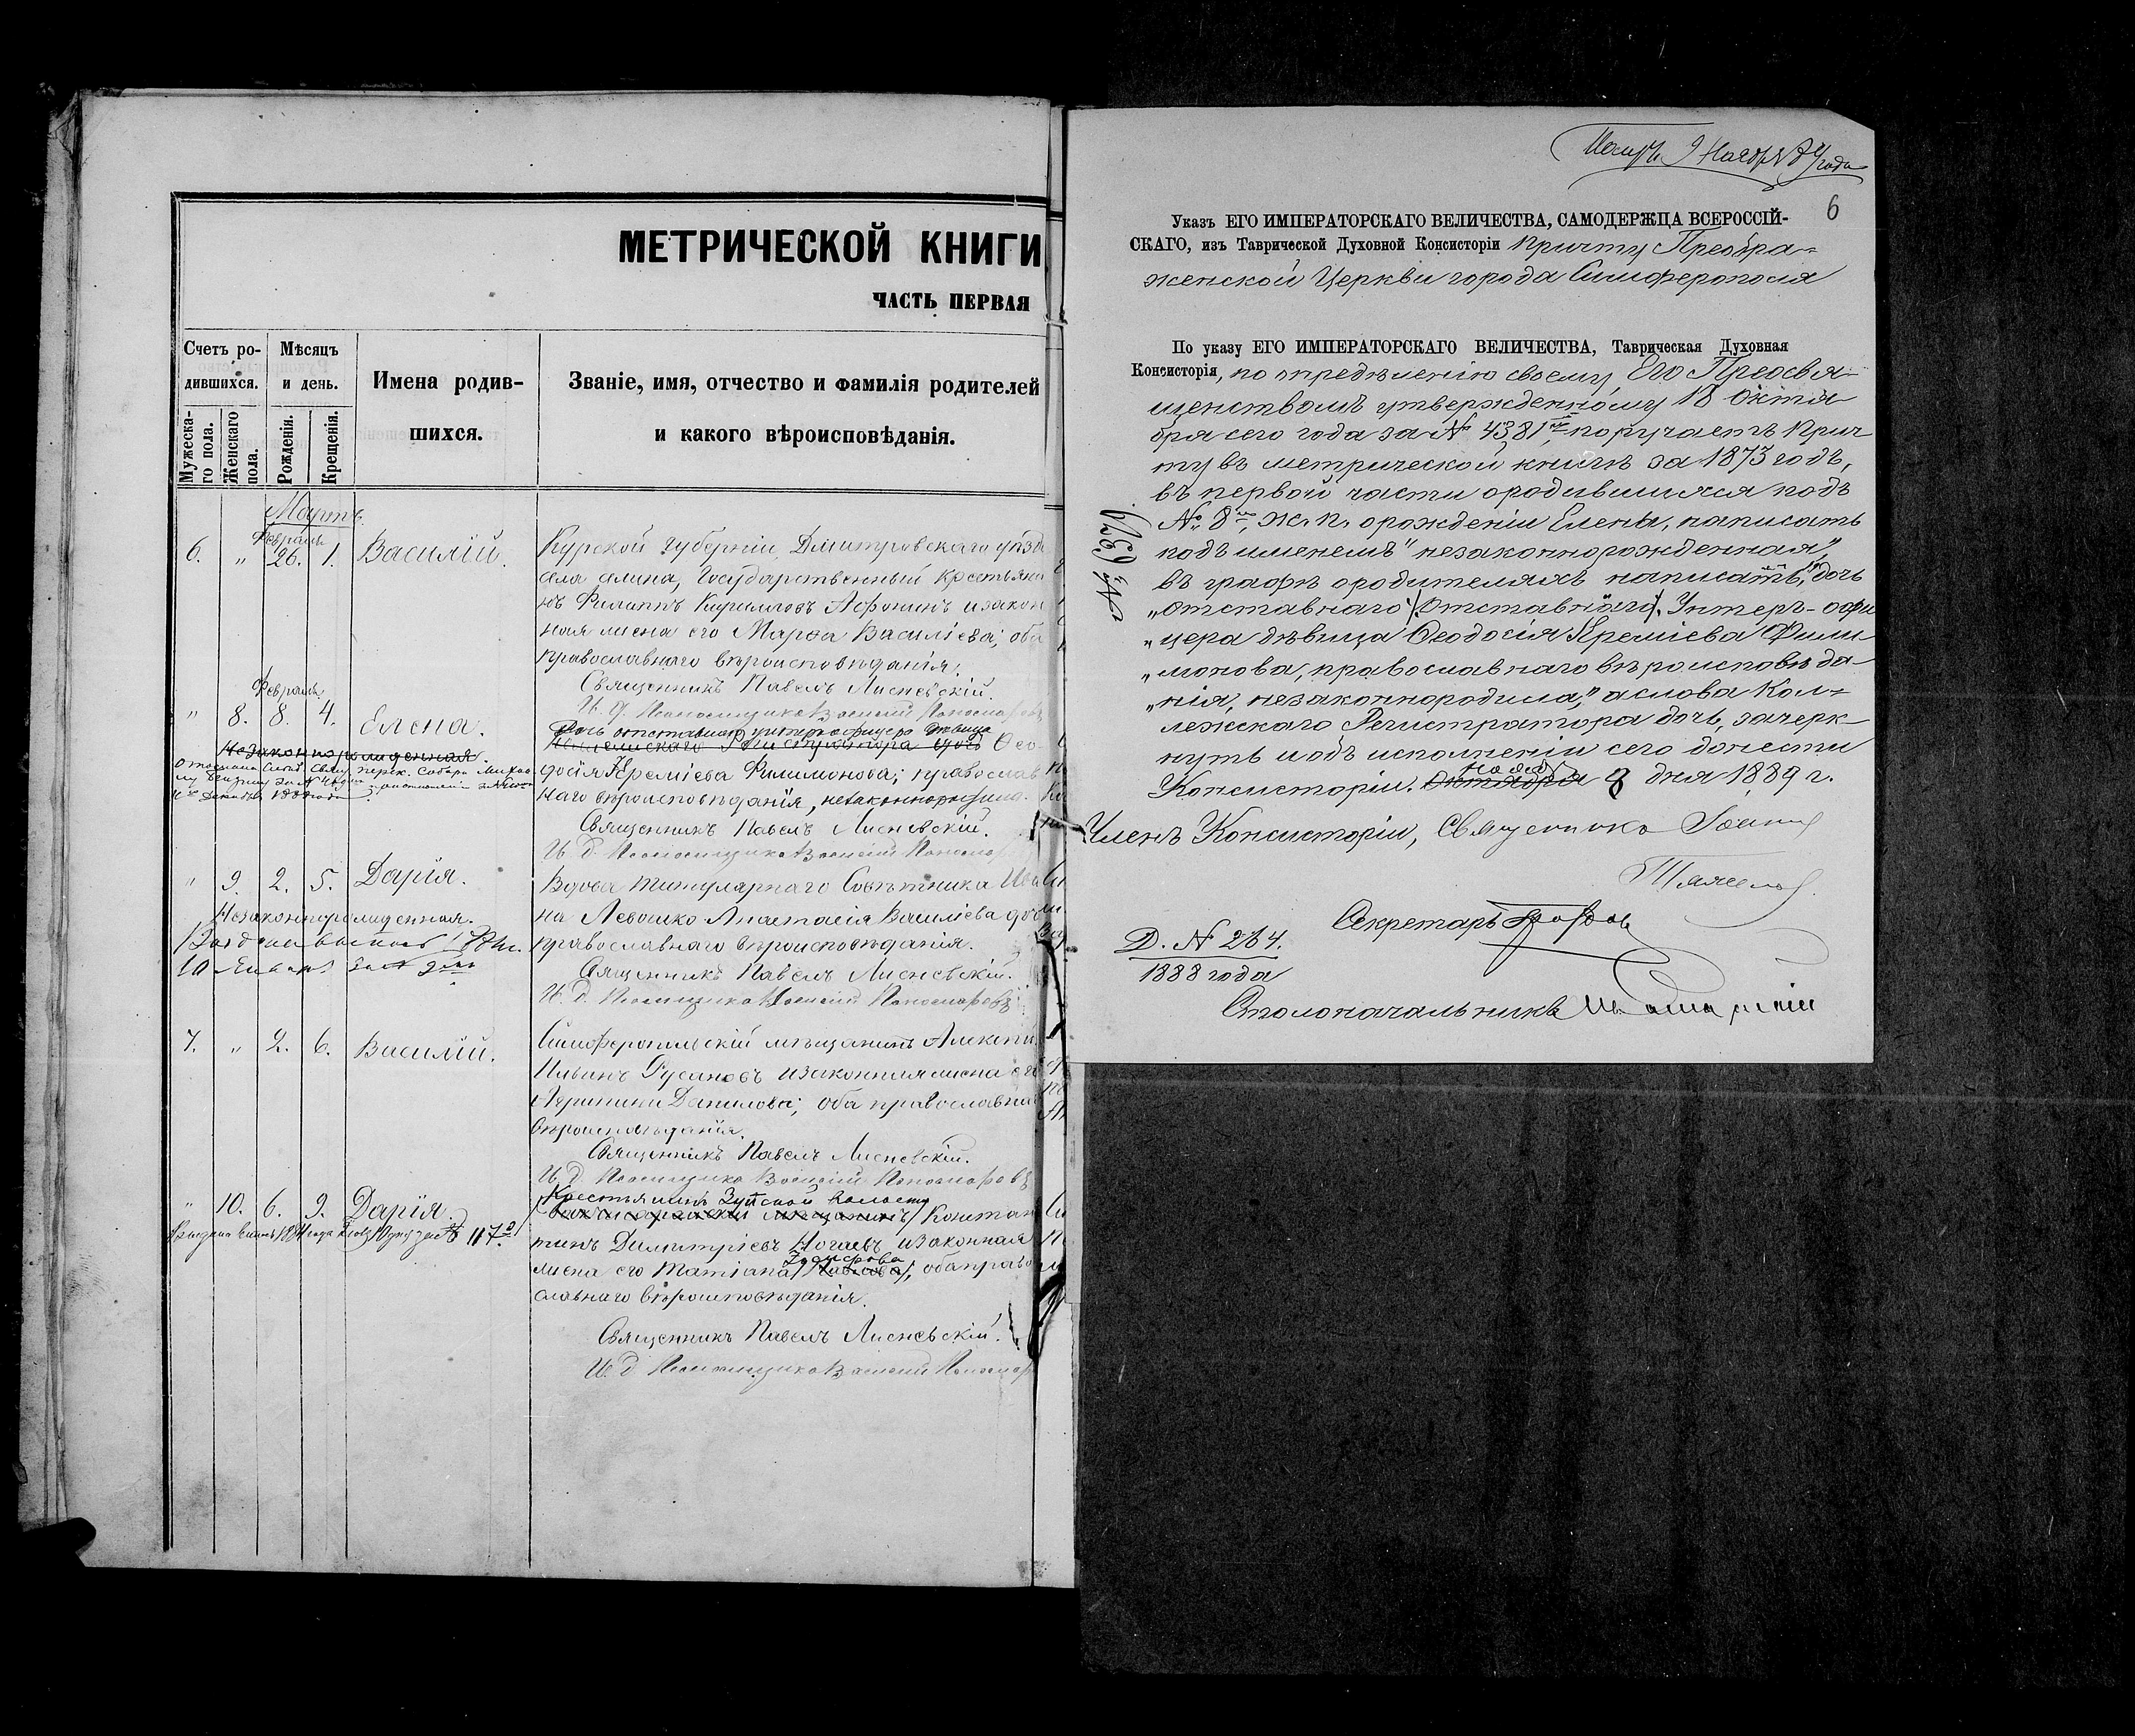 МЕТРИЧЕСКОЙ КНИГИ
ЧАСТЬ ПЕРВАЯ
Счетъ ро-
дившихся.
Мѣсяцъ
и день.
Имена родив-
шихся.
Званіе, имя, отчество и фамилія родителей
и какого вѣроисповѣданія.
Мужеска-
го пола.
Женскаго
пола.
Рожденія.
Крещенія.
Мартъ.
Февраль
6. „ 26. 1. Василій.
Курской губерніи, Дмитровскаго уѣзд
села Государственный крестьяни
нъ Филиппъ Кирилловъ Афонинъ и закон
ная жена его Марѳа Василіева; оба
православнаго вѣроисповѣданія.
Священникъ Павелъ Лисневскій.
И. д. Псаломщика Василій Пономаревъ
Февраль.
„ 8. 8. 4. Елена.
Незаконнорожденная.
Дочь отставнаго унтеръ-офицера дѣвица
Коллежскаго Регистратора дочь Ѳео-
досія Ереміева Филимонова; православ
наго вѣроисповѣданія, незаконнородила.
Священникъ Павелъ Лисневскій.
И. д. Псаломщика Василій Пономар
„ 9. 2. 5. Дарія.
Незаконнорожденная.
10 Января за №
Вдова титулярнаго Совѣтника Ива
на Левошко Анастасія Василіева доч
православнаго вѣроисповѣданія.
Священникъ Павелъ Лисневскій.
И. д. Псаломщика Василій Пономаревъ
7. „ 2. 6. Василій.
Симферопольскій мѣщанинъ Алексѣй
Ильинъ Русановъ и законная жена его
Данилова; оба православна
вѣроисповѣданія.
Священникъ Павелъ Лисневскій.
И. д. Псаломщика Василій Пономаревъ
„ 10. 6. 9. Дарія.
Крестьянинъ Зуйской волости
Бахчисарайскій мѣщанинъ Констан
тинъ Димитріевъ Ногаевъ и законная
жена его Татіана оба право
славнаго вѣроисповѣданія.
Священникъ Павелъ Лисневскій.
И. д. Псаломщика Василій Пономар
9 Ноября 89 года
6
Указъ ЕГО ИМПЕРАТОРСКАГО ВЕЛИЧЕСТВА, САМОДЕРЖЦА ВСЕРОССІЙ-
СКАГО, изъ Таврической Духовной Консисторіи Причту Преобра-
женской Церкви города Симферополя
По указу ЕГО ИМПЕРАТОРСКАГО ВЕЛИЧЕСТВА, Таврическая Духовная
Консисторія, по опредѣленію своему, Его Преосвя-
щенствомъ утвержденному 18 Октя-
бря сего года за № 4381мъ, поручаетъ Прич
ту въ метрической книгѣ за 1873 годъ,
въ первой части о родившихся подъ
№ 8мъ, ж. п. о рожденіи Елены, написать
подъ именемъ „незаконнорожденная",
въ графѣ о родителяхъ написать: „дочь
„отставнаго (отставнаго). Унтеръ-офи
„цера дѣвица Ѳеодосія Ереміева Фили
„монова, православнаго вѣроисповѣда-
„нія, незаконнородила," а слова Кол-
лежскаго Регистратора дочь, зачерк-
нуть и объ исполненіи сего донести
Консисторіи. Октября Ноября 8 дня 1889 г.
№ 6379
Членъ Консисторіи, Священникъ
Секретарь
Д. № 264.
1888 года
Столоначальникъ